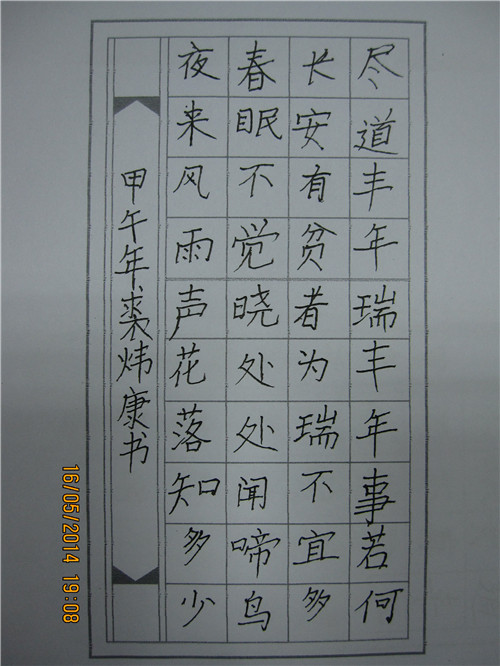 尽道丰年瑞丰年事若何
长安有贫者为瑞不宜多
春眠不觉晓处处闻啼鸟
夜来风雨声花落知多少
甲午年裘炜康书
16/05/2014 19:08